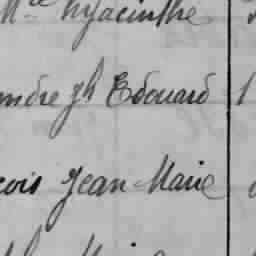 Mce hyacinthe
ndre Jh Edouard 1
cois Jean-Marie